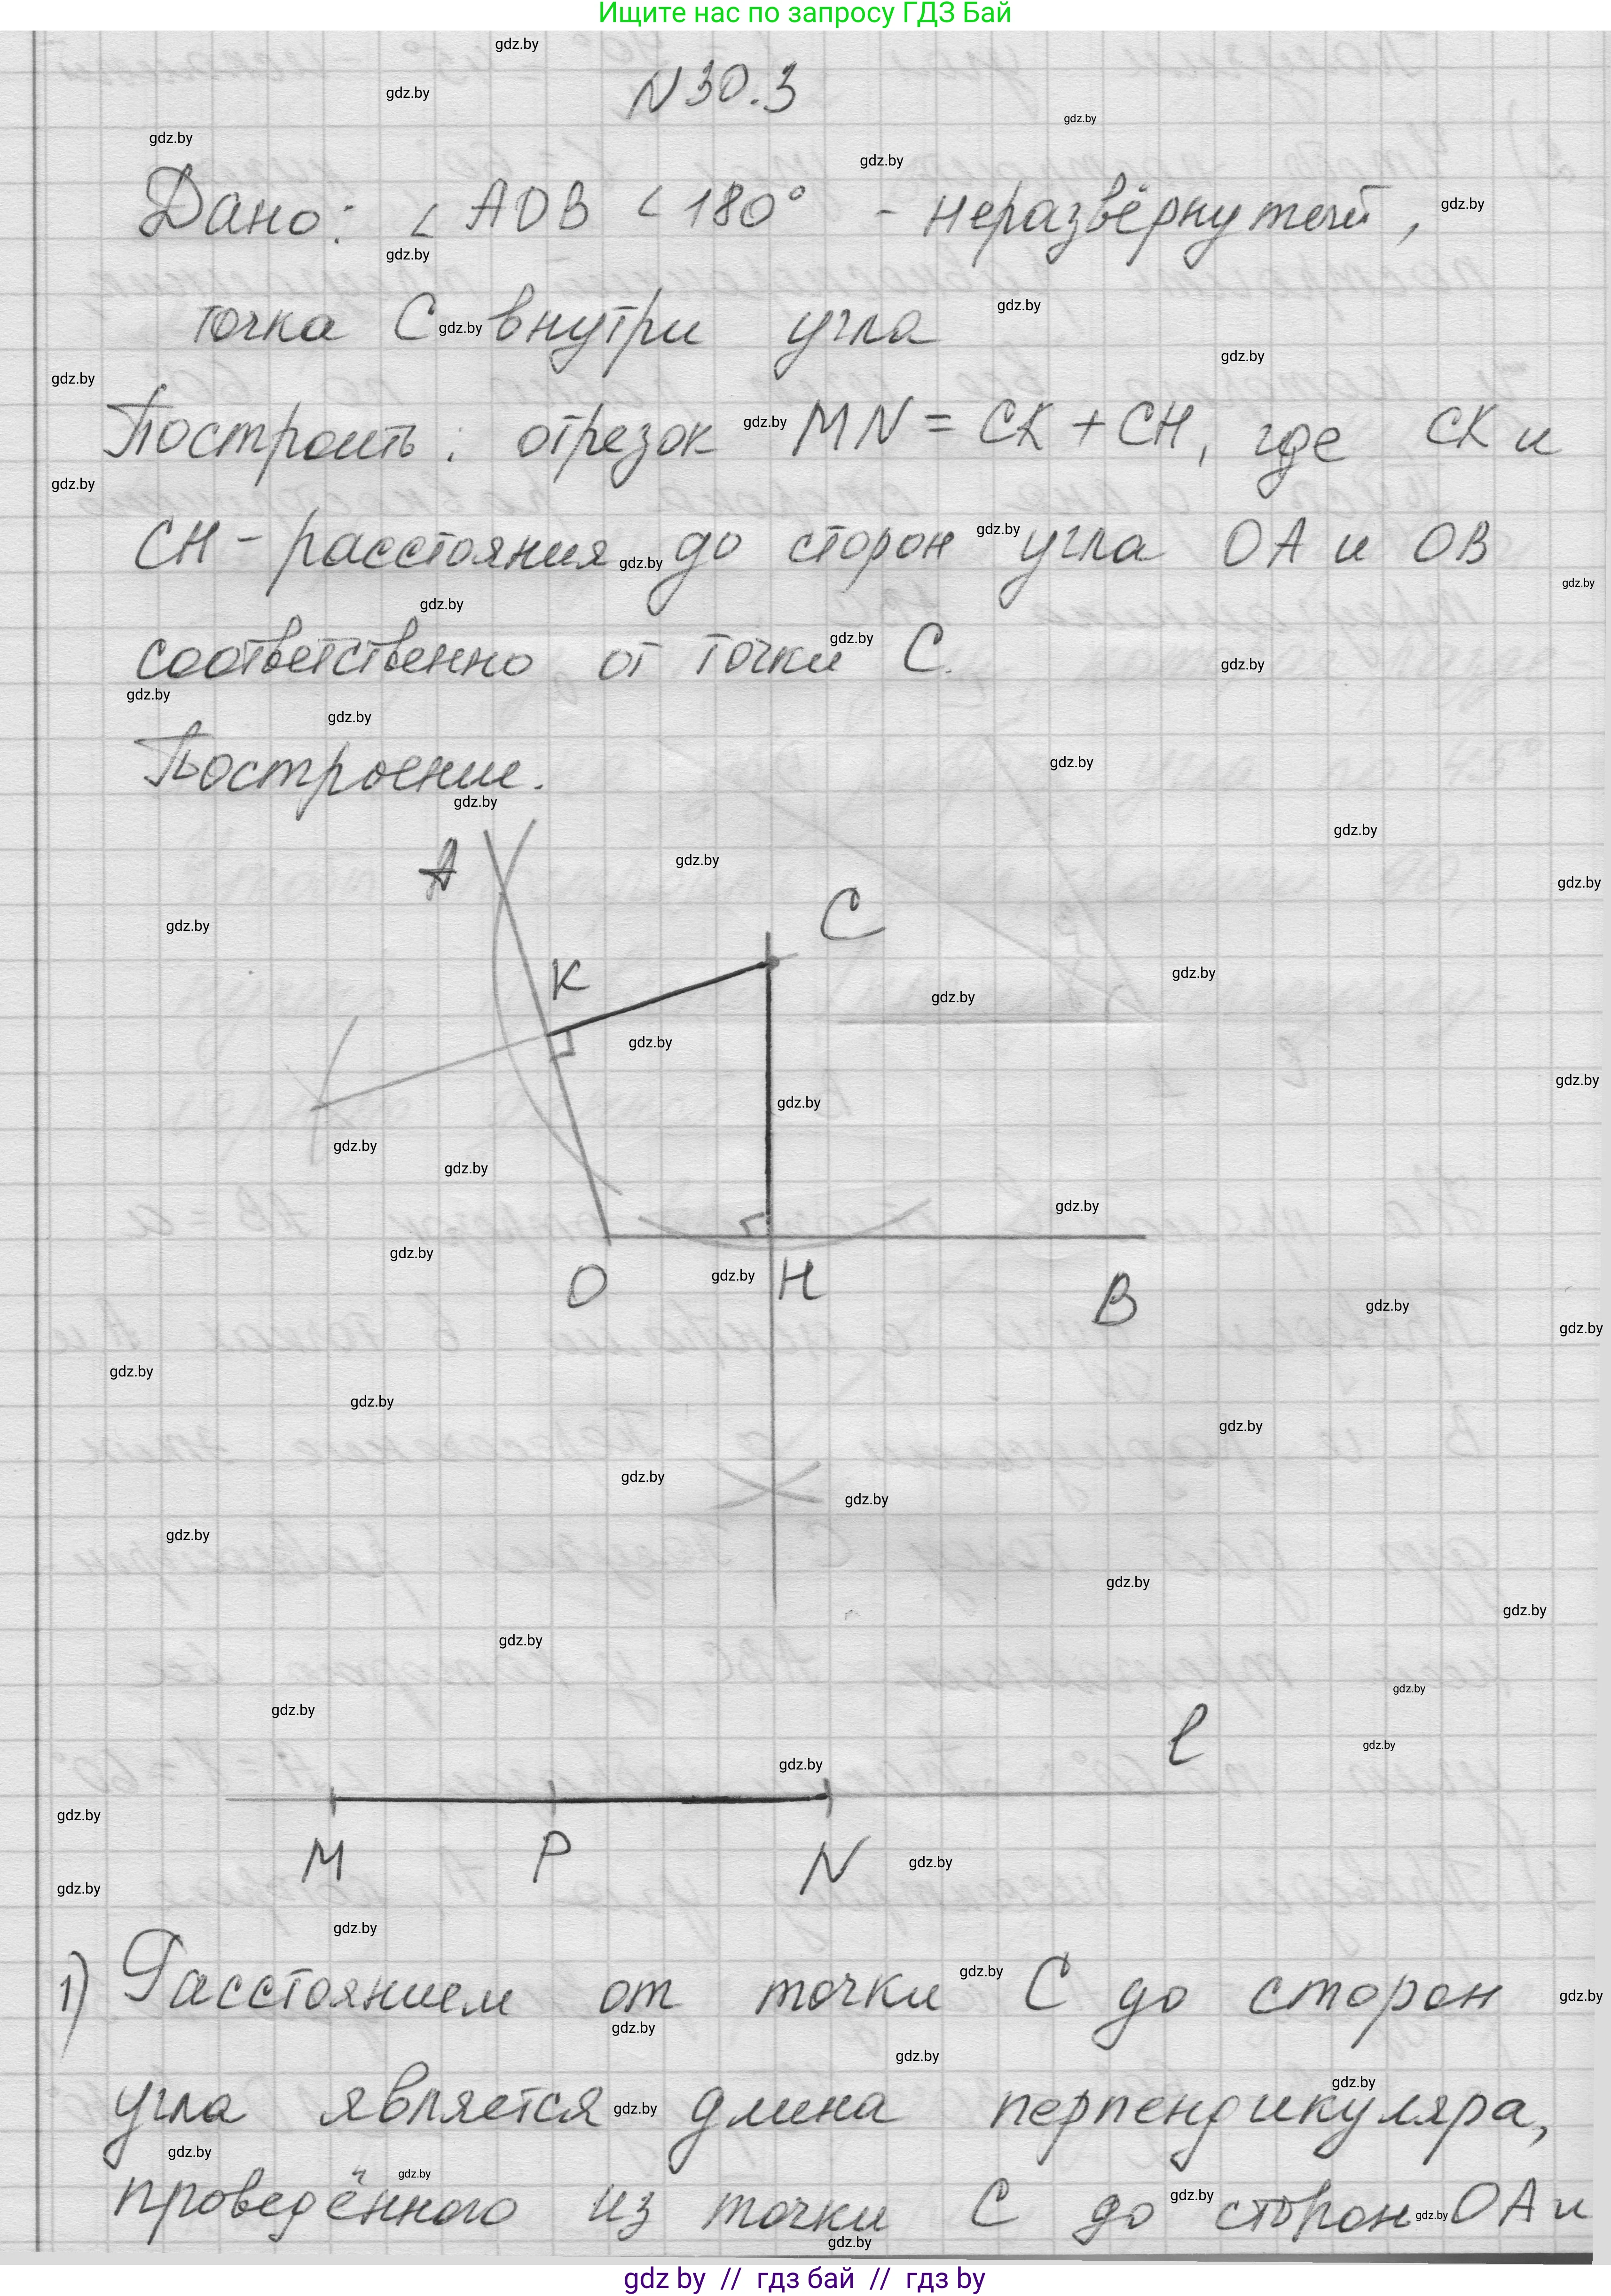 Ищите нас по запросу ГДЗ Бай
N30.3
Дано: ∠AOB < 180° - неразвёрнутый,
точка C внутри угла
Построить: отрезок MN = CK + CH, где CK и
CH - расстояния до сторон угла OA и OB
соответственно от точки C.
Построение.
A
C
K
O
H
B
l
M P N
1) Расстоянием от точки C до сторон
угла является длина перпендикуляра,
проведённого из точки C до сторон OA и
gdz by // гдз бай // гдз by